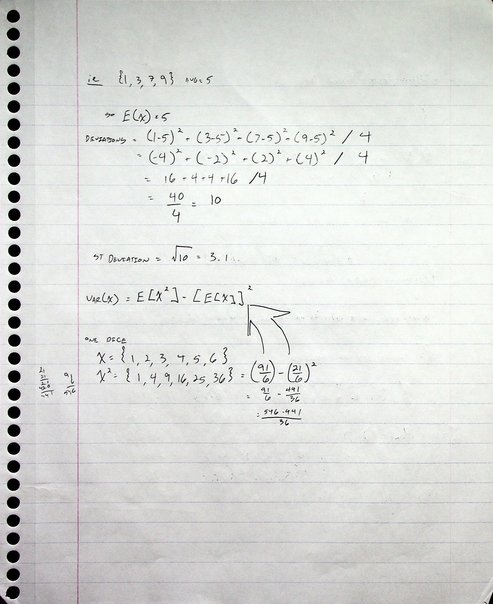 ie {1, 3, 7, 9} avg = 5
so E(x) = 5
DEVIATIONS = (1-5)² + (3-5)² + (7-5)² + (9-5)² / 4
= (-4)² + (-2)² + (2)² + (4)² / 4
= 16 + 4 + 4 + 16 / 4
= 40/4 = 10
ST DEVIATION = √10 = 3.1...
VAR(X) = E[X²] - [E[X]]²
ONE DICE
X = {1, 2, 3, 4, 5, 6}
X² = {1, 4, 9, 16, 25, 36} = (91/6) - (21/6)²
= 91/6 - 441/36
= 546-441/36
21
441
91
6
546